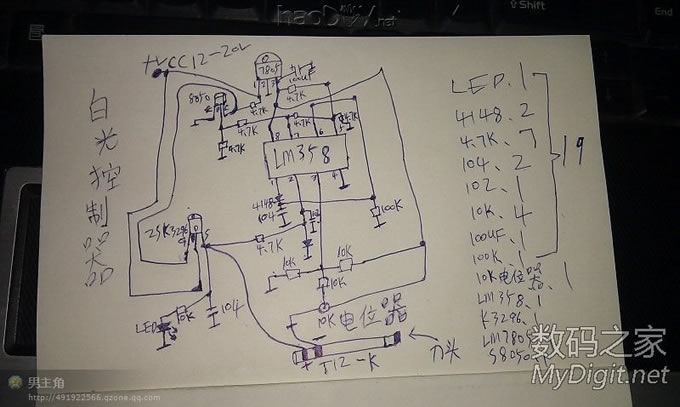 haoDIY.net
Shift
End
+VCC12-20V
7805
100UF
8050
4.7K
4.7K
4.7K
4.7K
4.7K
1 2 3
8 7 6 5
LM358
1 2 3 4
白光控制器
4148
104
102
100K
2SK3296
S
4.7K
10K
10K
10K
LED
10K
104
10K电位器
+ T12-K
刀头
LED.1
4148.2
4.7K.7
104.2
102.1
10K.4
100UF.1
100K.1
19
10K电位器.1
LM358.1
K3296.1
LM7805
S8050
数码之家
MyDigit.net
男主角
http://491922566.qzone.qq.com